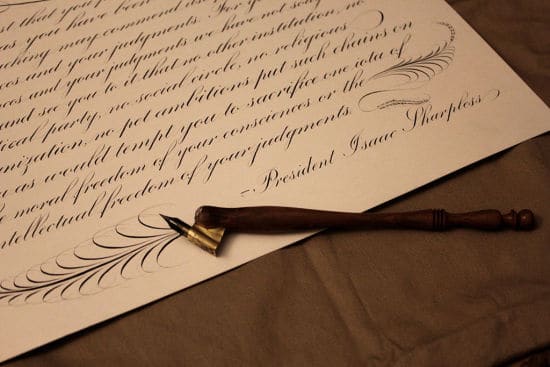 that you
as you have been
may commend
and your judgments. For
and your judgments we have not
and see you to it that no other institution, no
party, no social circle, no religious
no pet ambitions put such chains on
as would tempt you to sacrifice one iota of
moral freedom of your consciences or the
ntellectual freedom of your judgments.
~ President Isaac Sharpless